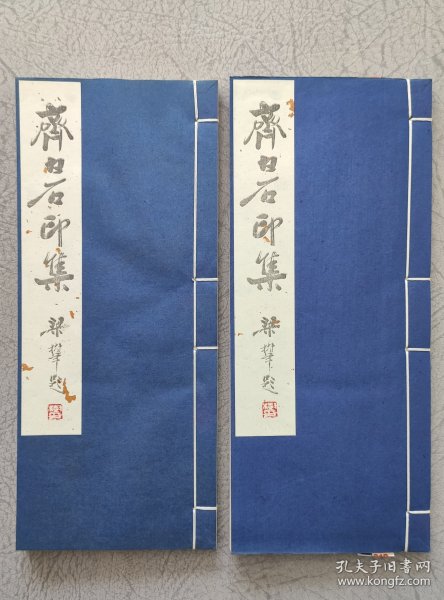 齊白石印集
梁樹年題
齊白石印集
梁樹年題
孔夫子旧书网
www.kongfz.com